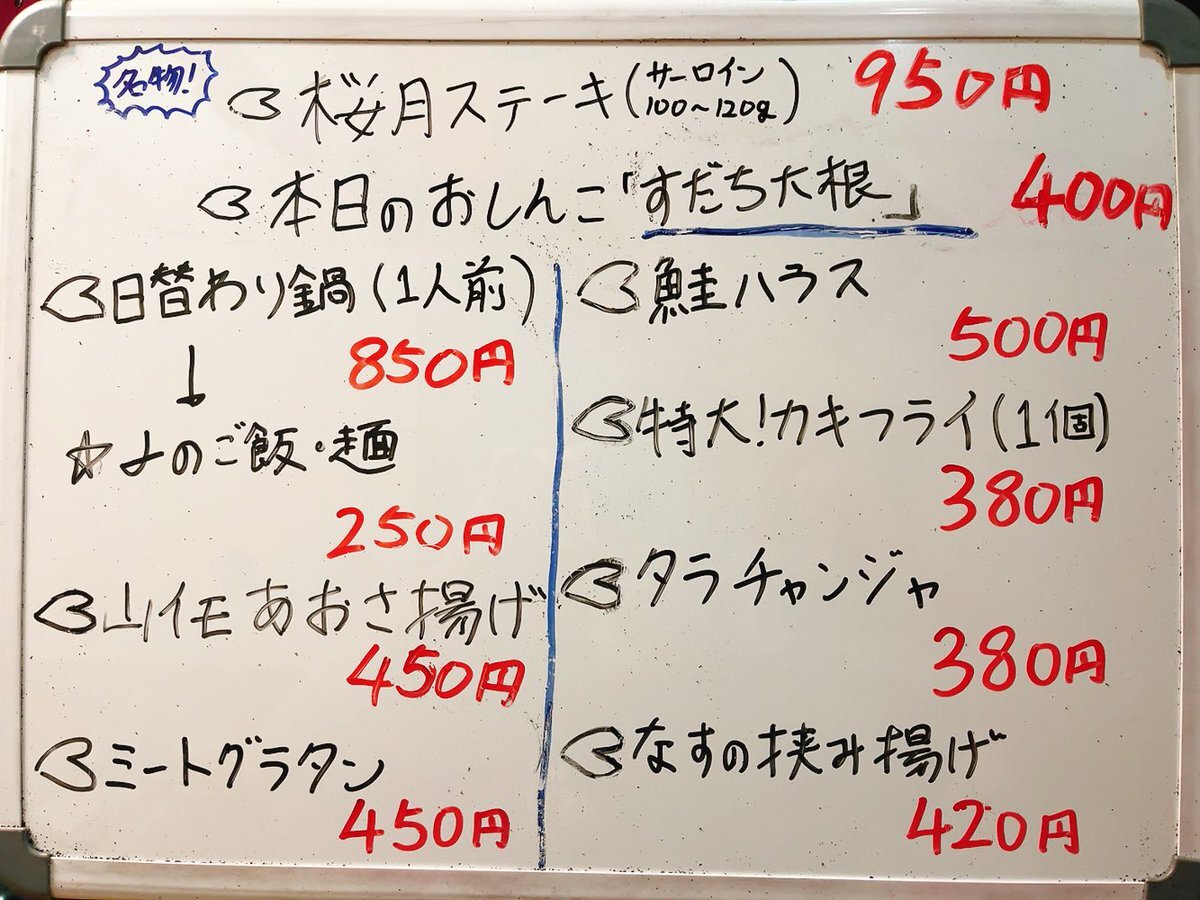 名物!
桜月ステーキ(サーロイン 100~120g) 950円
本日のおしんこ「すだち大根」 400円
日替わり鍋(1人前)
850円
↓
☆よのご飯・麺
250円
山イモあおさ揚げ
450円
ミートグラタン
450円
鮭ハラス
500円
特大!カキフライ(1個)
380円
タラチャンジャ
380円
なすの挟み揚げ
420円